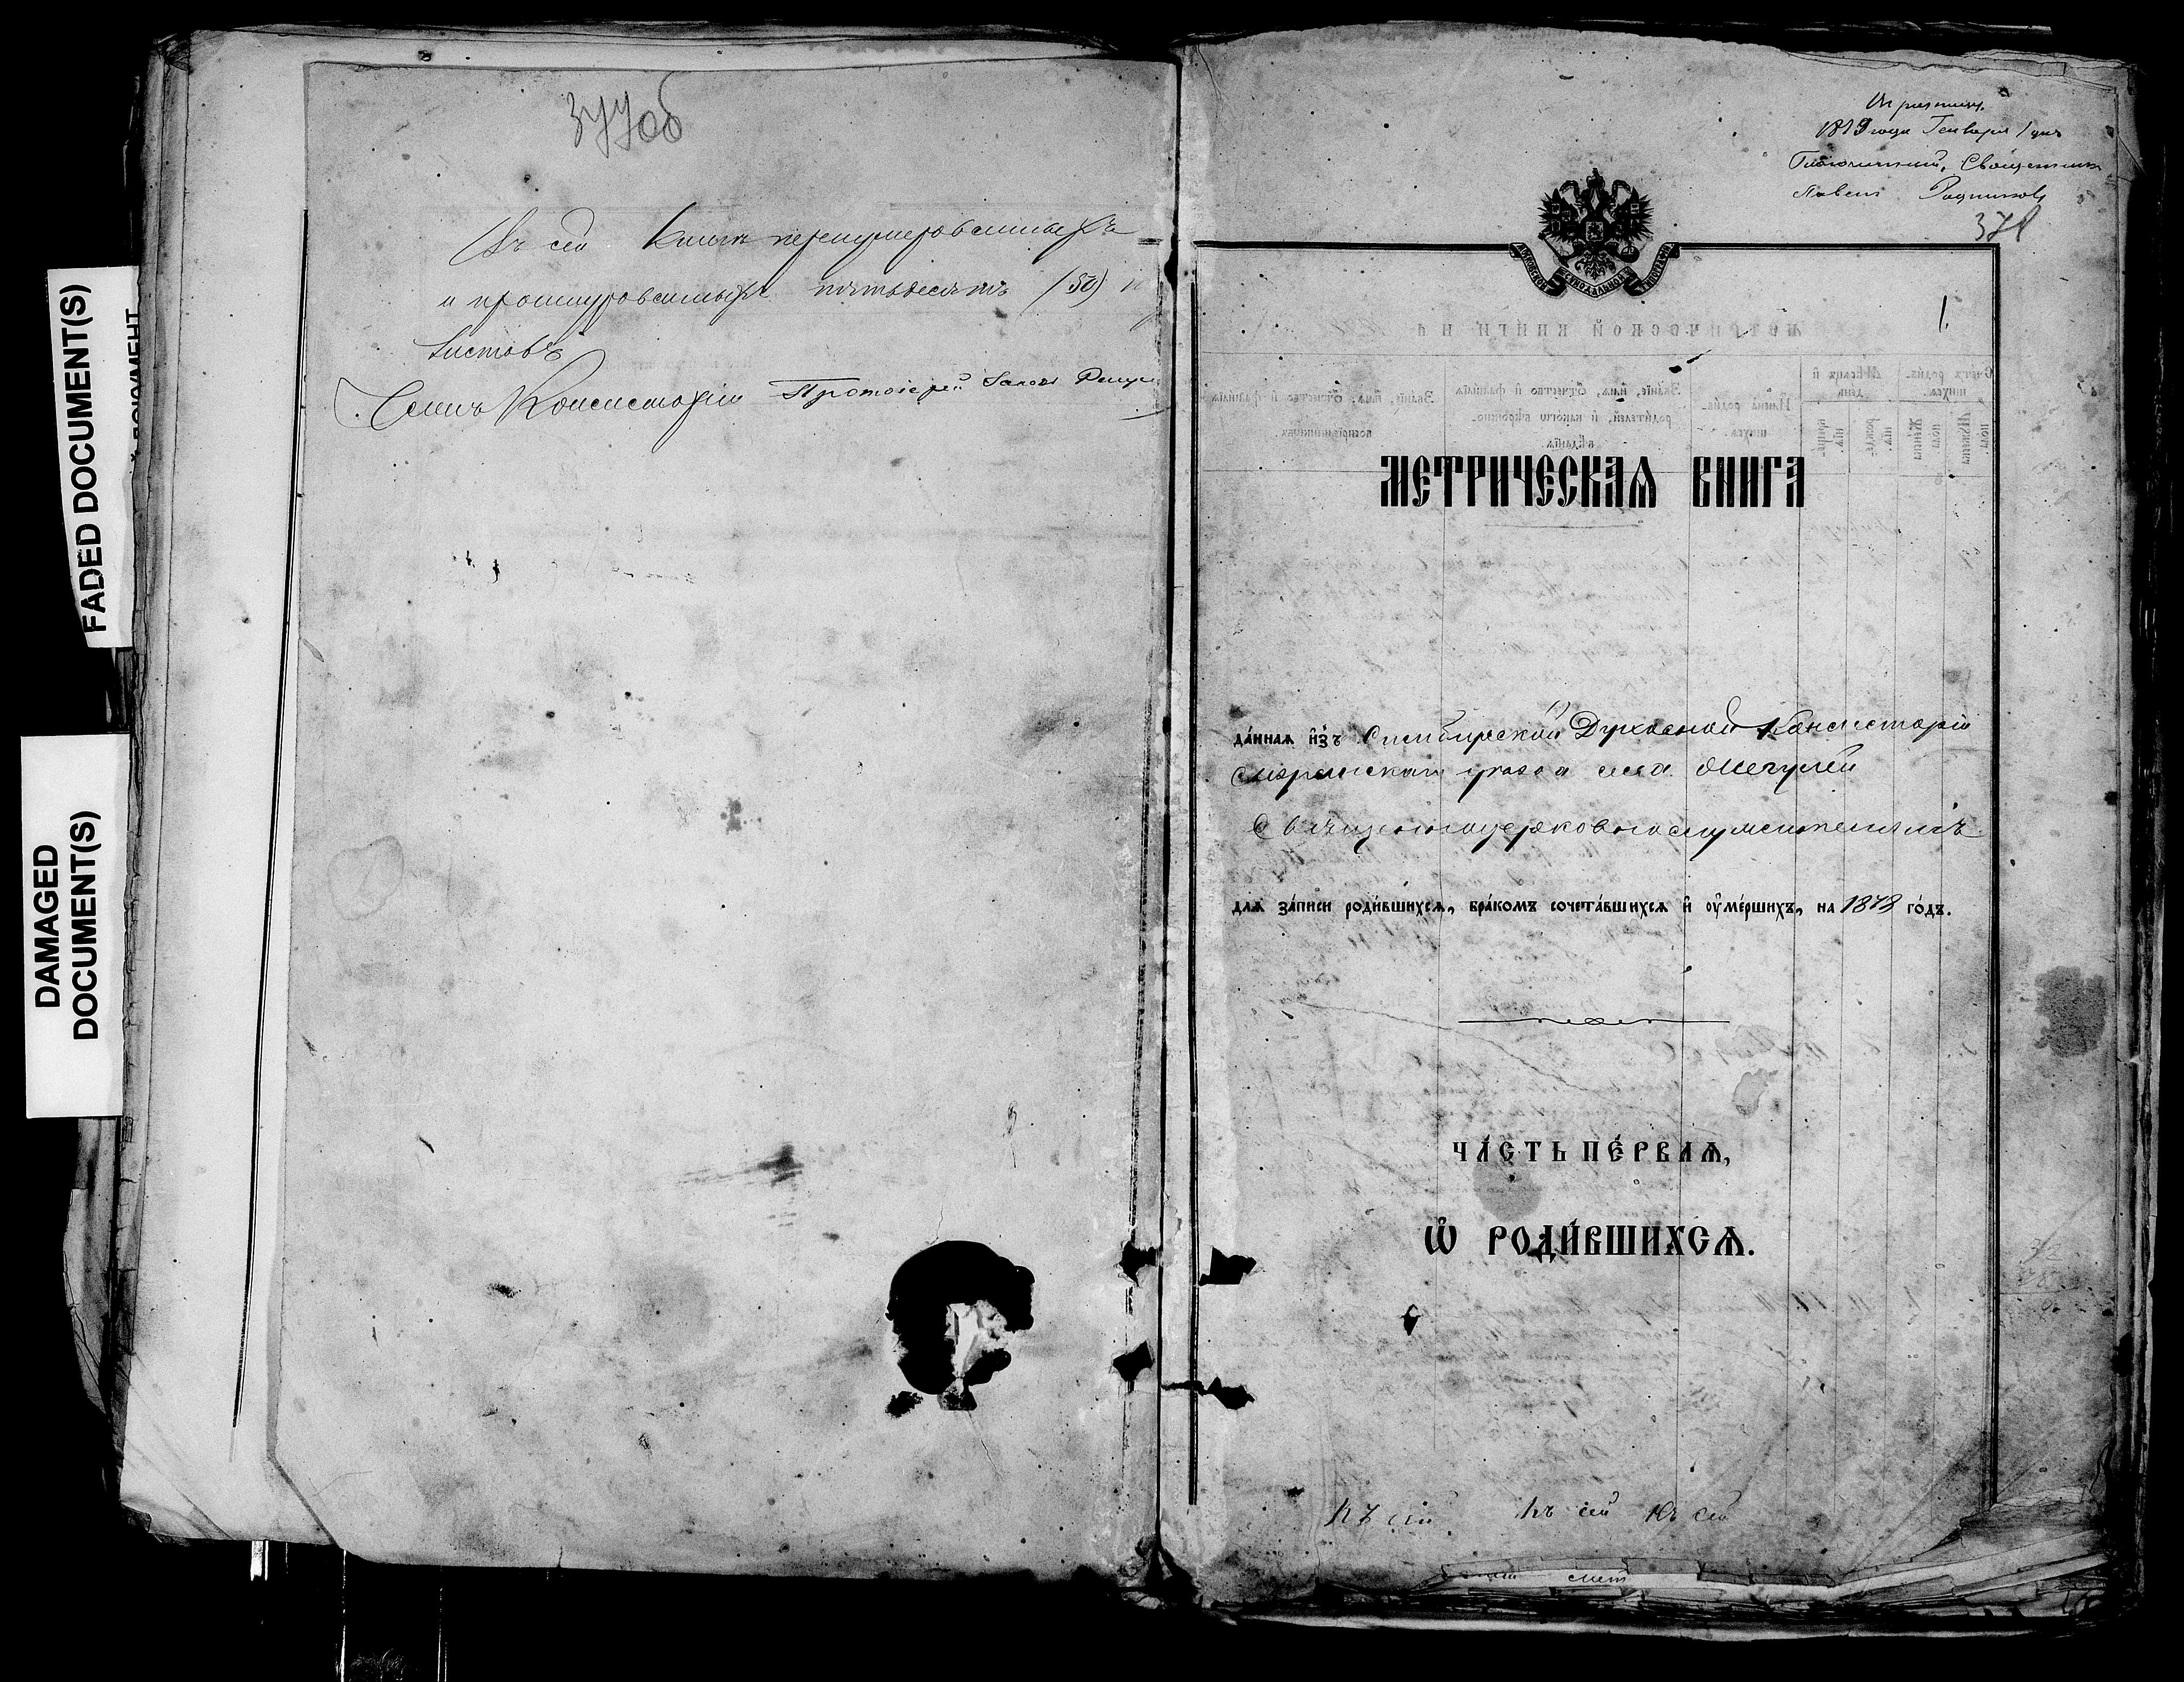 FADED DOCUMENT(S)
DAMAGED
DOCUMENT(S)
377об
Въ сей Книгѣ перенумерованныхъ
и прошнурованныхъ пятьдесятъ (50)
Листовъ
Членъ Консисторіи Протоіерей
1879 года Генваря 1 дня
Благочинный, Священникъ
Павелъ Родниковъ
378
1.
МЕТРИЧЕСКАѦ КНИГА
да́ннаѧ и҆зъ Симбирской Духовной Консисторіи
уѣзда села
Священноцерковнослужителямъ
для за́писи роди́вшихсѧ, бра́комъ сочета́вшихсѧ и҆ ᲂу҆ме́ршихъ, на 1878 го́дъ.
ЧА́СТЬ ПЕ́РВАѦ,
Ѡ҆ РОДИ́ВШИХСѦ.
къ сей къ сей къ сей